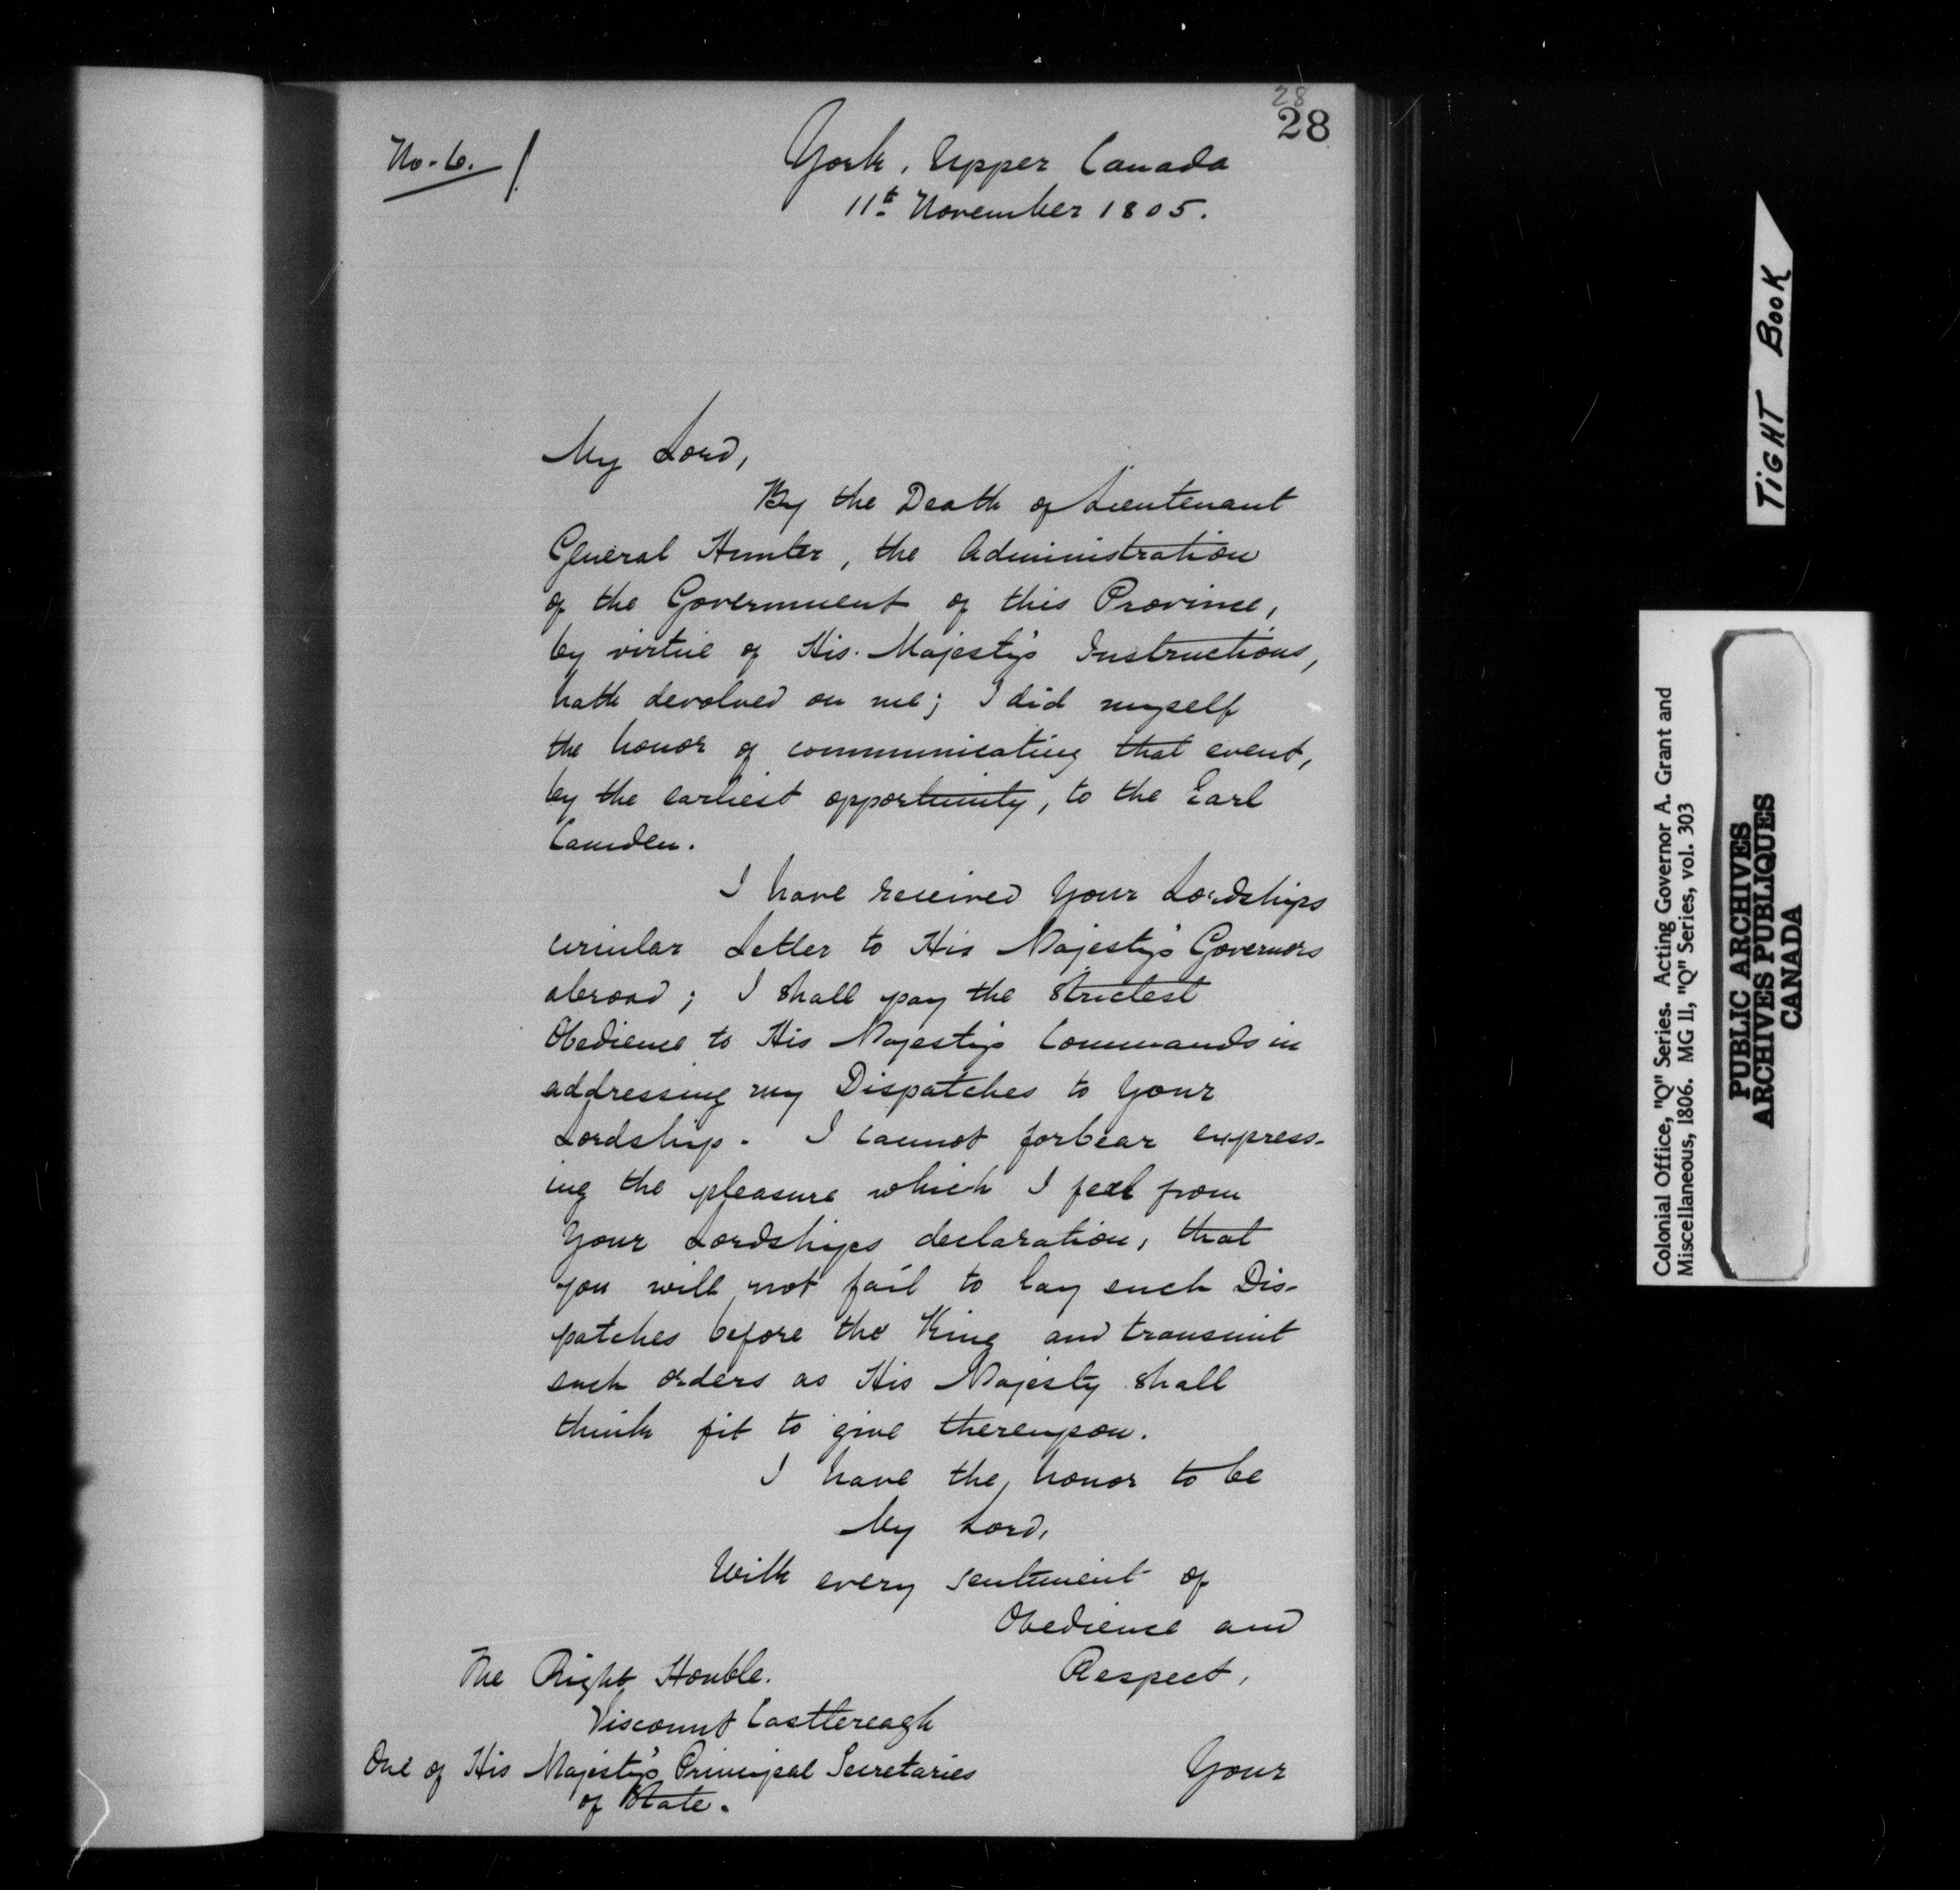 28
28
No. 6.
York, Upper Canada
11t November 1805.
My Lord,
By the Death of Lieutenant
General Hunter, the Administration
of the Government of this Province,
by virtue of His Majesty's Instructions,
hath devolved on me; I did myself
the honor of communicating that event,
by the earliest opportunity, to the Earl
Camden.
I have received Your Lordships
circular Letter to His Majesty's Governors
abroad; I shall pay the strictest
Obedience to His Majesty's Commands in
addressing my Dispatches to Your
Lordship. I cannot forbear express-
ing the pleasure which I feel from
Your Lordships declaration, that
you will not fail to lay such Dis-
patches before the King and transmit
such orders as His Majesty shall
think fit to give thereupon.
I have the honor to be
My Lord,
With every sentiment of
Obedience and
Respect,
The Right Honble.
Viscount Castlereagh
One of His Majesty's Principal Secretaries
of State.
Your
TiGHT BOOK
Colonial Office, "Q" Series. Acting Governor A. Grant and
Miscellaneous, 1806. MG 11, "Q" Series, vol. 303
PUBLIC ARCHIVES
ARCHIVES PUBLIQUES
CANADA